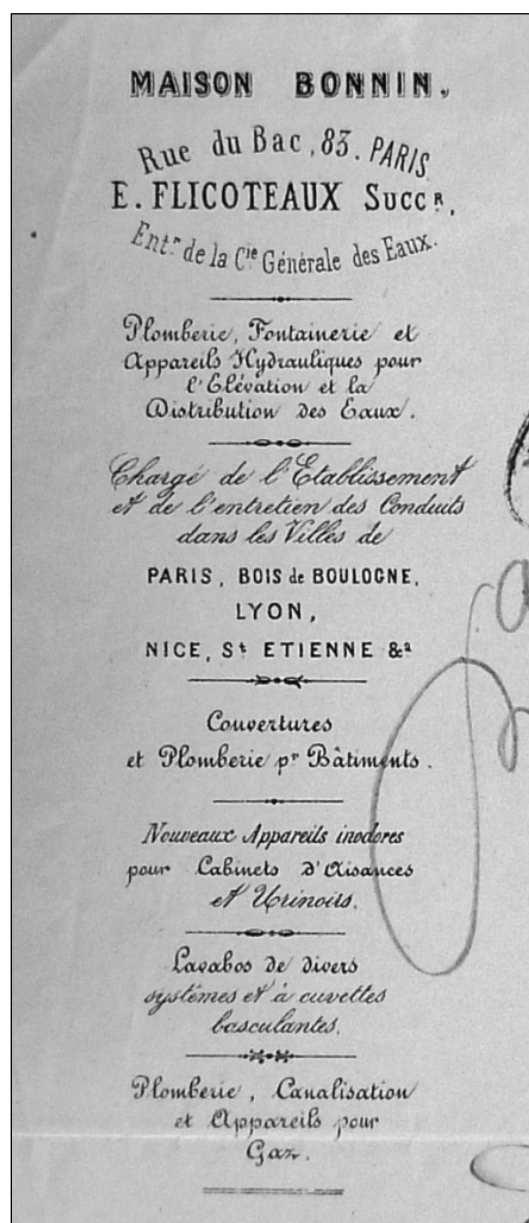 MAISON BONNIN.
Rue du Bac, 83. PARIS
E. FLICOTEAUX SUCCR,
Entr de la Cie Générale des Eaux.
Plomberie, Fontainerie et
Appareils Hydrauliques pour
l'Elévation et la
Distribution des Eaux.
Chargé de l'Etablissement
et de l'entretien des Conduits
dans les Villes de
PARIS, BOIS de BOULOGNE,
LYON,
NICE, St ETIENNE &a
Couvertures
et Plomberie pr Bâtiments.
Nouveaux Appareils inodores
pour Cabinets d'Aisances
et Urinoirs.
Lavabos de divers
systêmes et à cuvettes
basculantes.
Plomberie, Canalisation
et Appareils pour
Gaz.